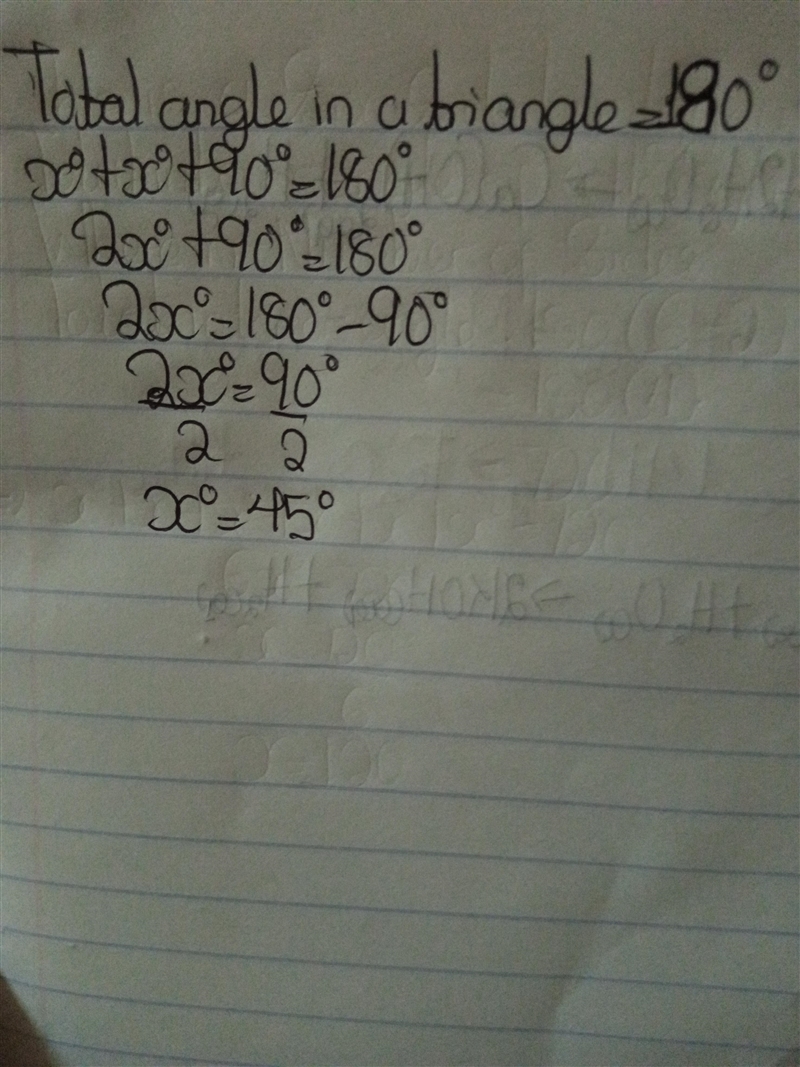 Total angle in a triangle = 180°
x° + x° + 90° = 180°
2x° + 90° = 180°
2x° = 180° - 90°
2x° = 90°
2 2
x° = 45°